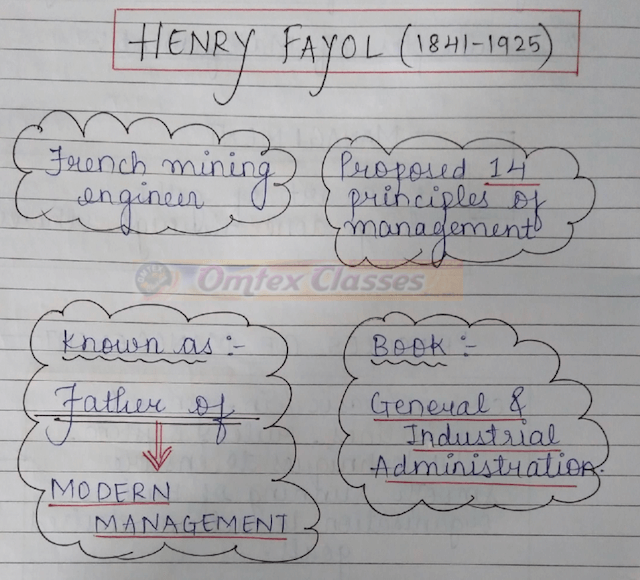 HENRY FAYOL (1841-1925)
French mining
engineer
Proposed 14
principles of
management
Omtex Classes
Known as :-
Father of
MODERN
MANAGEMENT
Book :-
General &
Industrial
Administration.